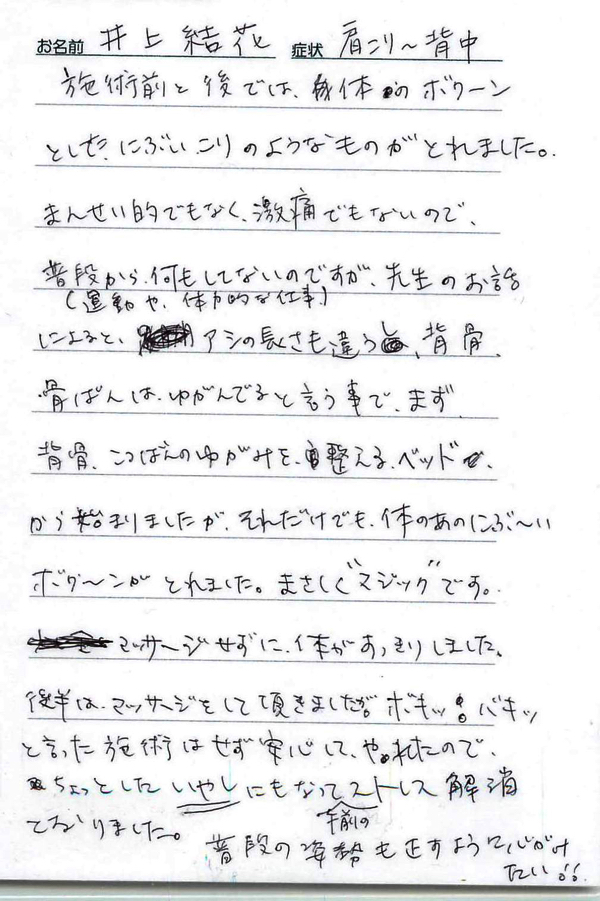 お名前 井上結花 症状 肩こり〜背中
施術前と後では、身体のボワーン
とした、にぶいこりのようなものがとれました。
まんせい的でもなく、激痛でもないので、
普段から、何もしてないのですが、先生のお話
(運動や、体力的な仕事)
によると、アシの長さも違うし、背骨、
骨ばんは、ゆがんでると言う事で、まず、
背骨、こつばんのゆがみを、整える、ベッド
から始まりましたが、それだけでも、体のあのにぶ〜い
ボワ〜ンがとれました。まさしく"マジック"です。
マッサージせずに、体がすっきりしました。
後半は、マッサージをして頂きましたが、ボキッ!バキッ
と言った施術はせず安心して、やれたので、
ちょっとしたいやしにもなってストレス解消
午前の
ておりました。
普段の姿勢も正すよう心がけ
たい!!